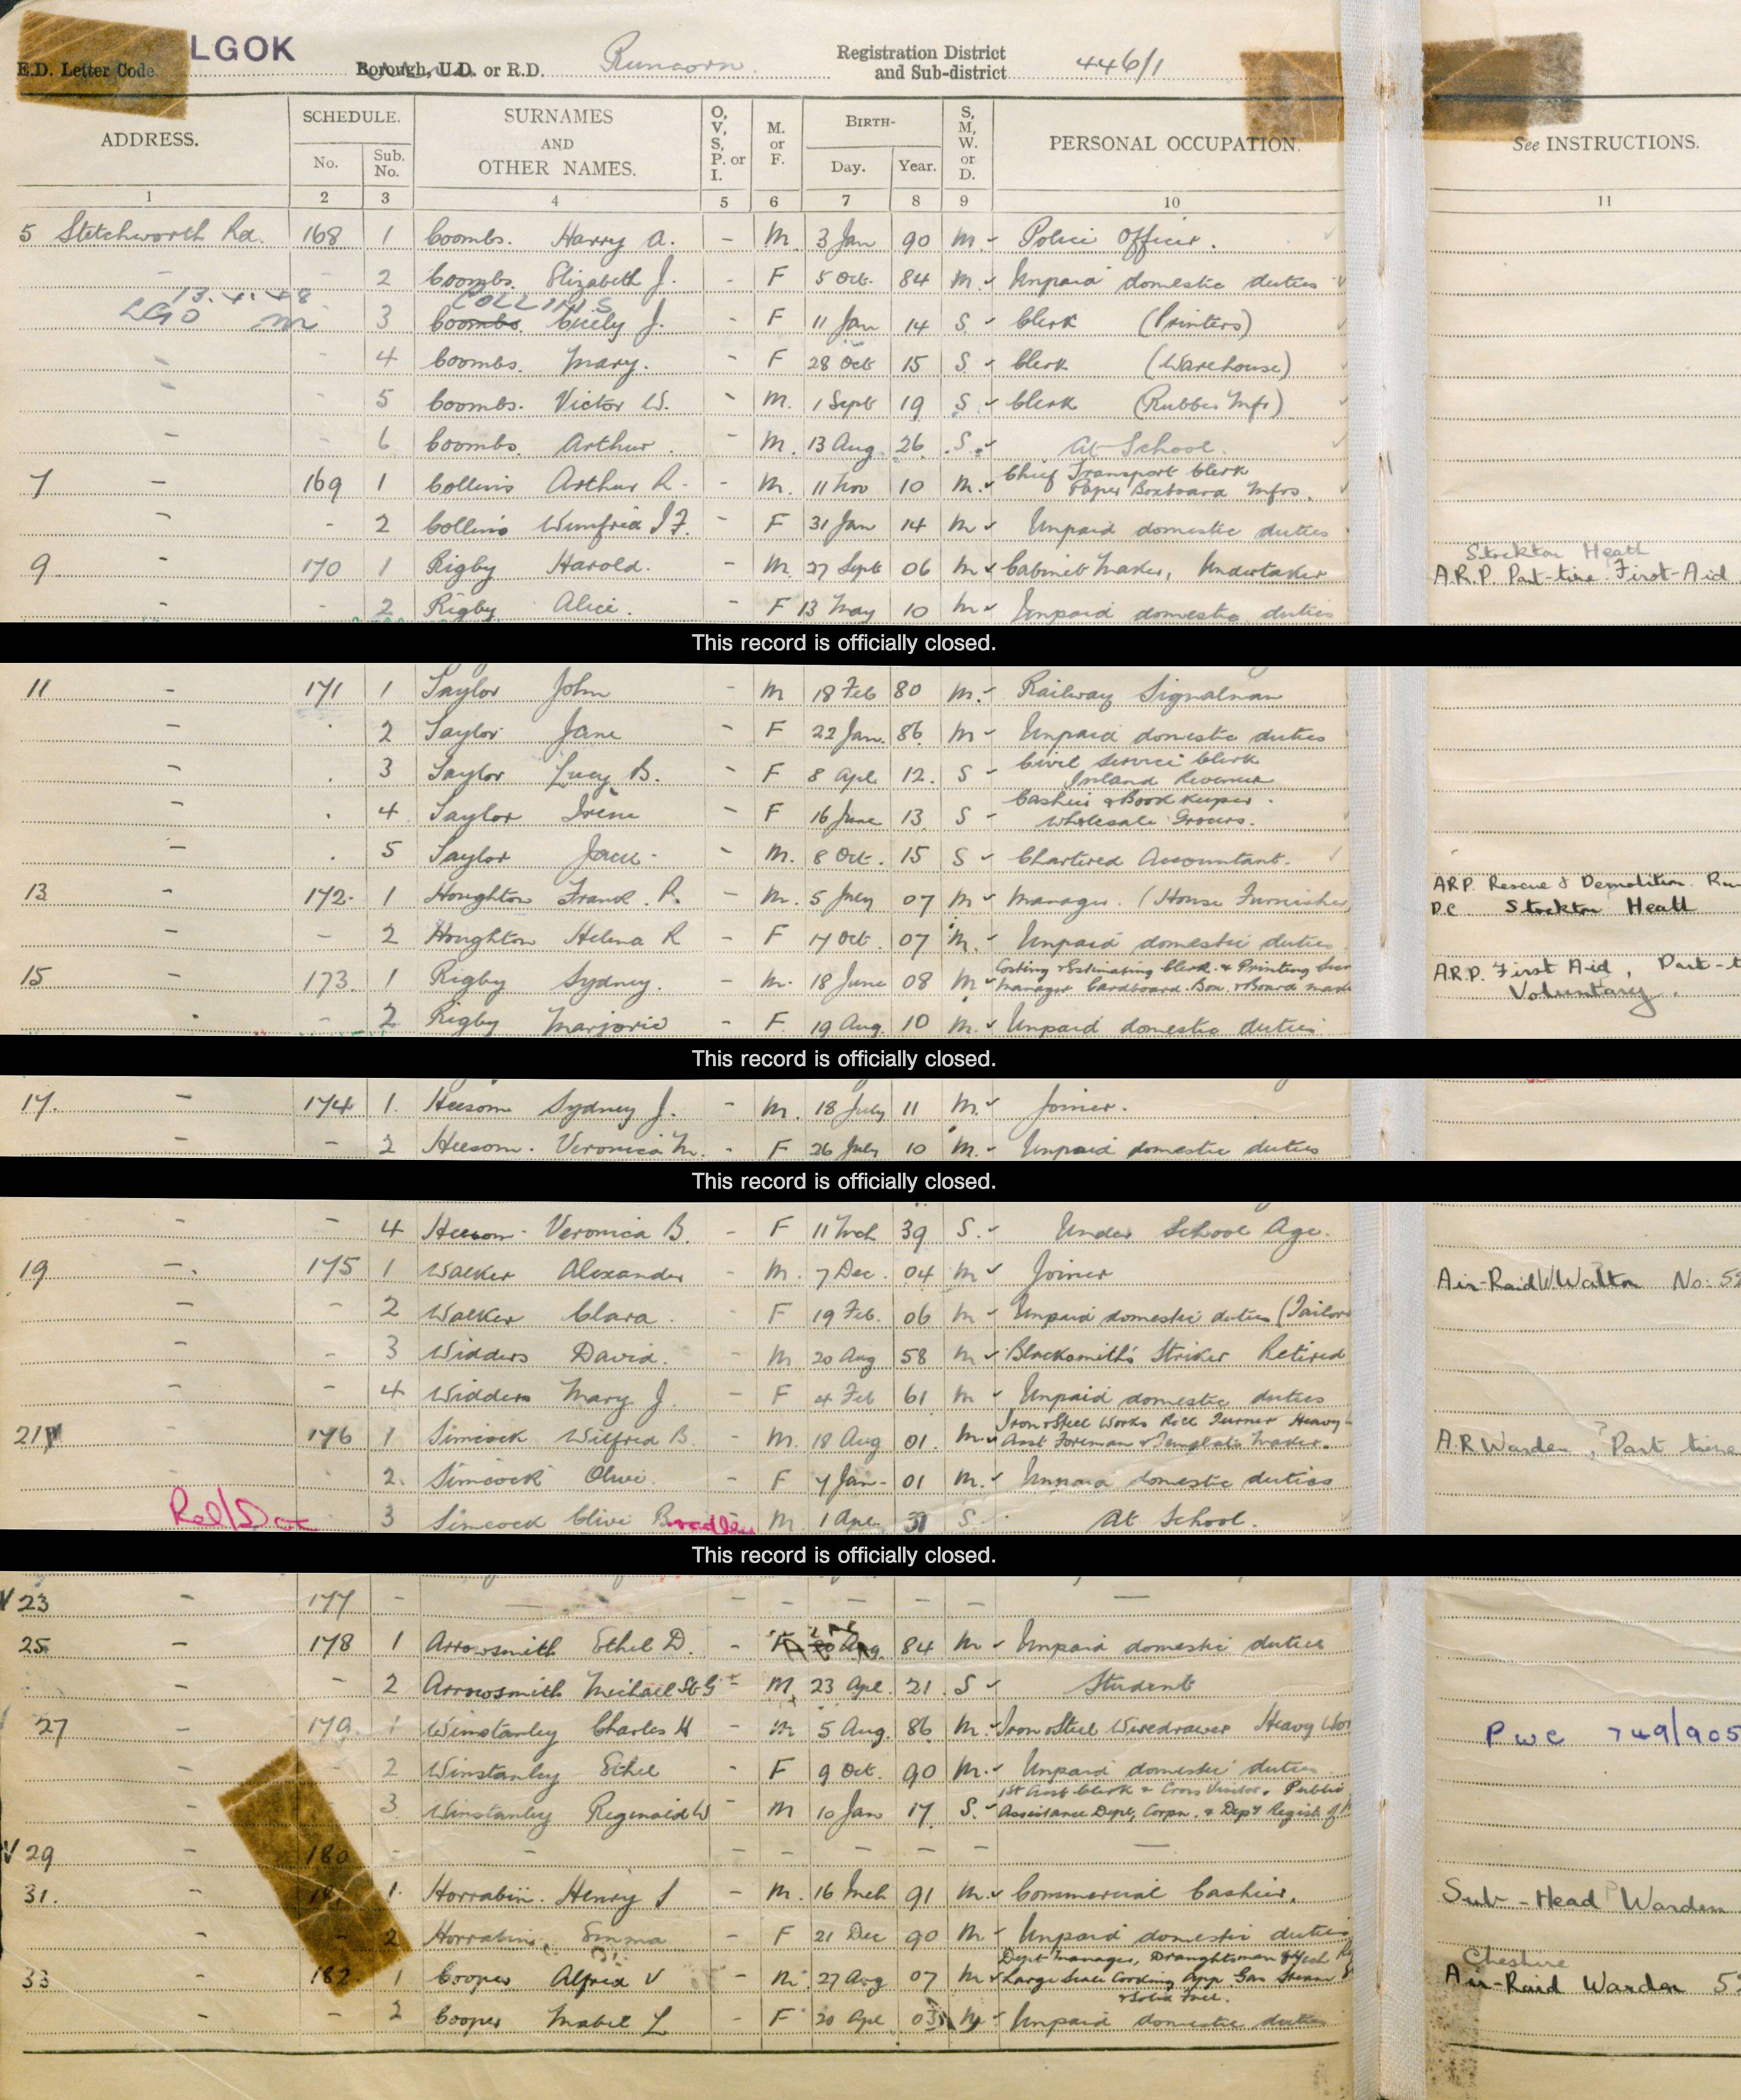 LGOK
E.D. Letter Code Borough, U.D. or R.D. Runcorn Registration District and Sub-district 446/1
ADDRESS. SCHEDULE. No. Sub. No. SURNAMES AND OTHER NAMES. O, V, S, P. or I. M. or F. BIRTH- Day. Year. S, M, W. or D. PERSONAL OCCUPATION. See INSTRUCTIONS.
1 2 3 4 5 6 7 8 9 10 11
5 Stetchworth Rd. 168 1 Coombs. Harry A. - M. 3 Jan 90 M. Police Officer.
- - 2 Coombs. Elizabeth J. - F 5 Oct. 84 M Unpaid domestic duties
13.4.48 COLLINS
LGO 3 Coombs. Cicely J. - F 11 Jan 14 S Clerk (Printers)
- - 4 Coombs. Mary. - F 28 Oct 15 S. Clerk (Warehouse)
- 5 Coombs. Victor W. - M. 1 Sept 19 S Clerk (Rubber Mfr)
- - 6 Coombs. Arthur. - M. 13 Aug. 26 S. At School.
7 - 169 1 Collins Arthur R. - M. 11 Nov 10 M. Chief Transport Clerk
Paper Boxboard Mfrs.
- - 2 Collins Winifred I F. - F 31 Jan 14 M Unpaid domestic duties
9 - 170 1 Rigby Harold. - M. 27 Sept 06 M Cabinet Maker, Undertaker Stockton Heath
A.R.P. Part-time First-Aid
- 2 Rigby Alice. - F 13 May 10 M Unpaid domestic duties
This record is officially closed.
11 - 171 1 Taylor John - M 18 Feb 80 M. Railway Signalman
- 2 Taylor Jane - F 22 Jan. 86 M Unpaid domestic duties
- 3 Taylor Lucy B. - F 8 Apl. 12. S Civil Service Clerk
Inland Revenue
- 4 Taylor Irene - F 16 June 13 S Cashier & Book Keeper.
Wholesale Grocers.
- 5 Taylor Jack - M. 8 Oct. 15 S Chartered Accountant.
13 - 172. 1 Houghton Frank. R. - M. 5 July 07 M Manager. (House Furnisher ARP. Rescue & Demolition. Run
D.C Stockton Heath
- - 2 Houghton Helena R - F 17 Oct. 07 M. Unpaid domestic duties
15 - 173. 1 Rigby Sydney. - M. 18 June 08 M Costing & Estimating Clerk. & Printing
Manager Cardboard. Box. & Board A.R.P. First Aid, Part-t
Voluntary.
- 2 Rigby Marjorie - F 19 Aug. 10 M. Unpaid domestic duties
This record is officially closed.
17. - 174 1. Heesom Sydney J. - M. 18 July 11 M. Joiner.
- - 2 Heesom. Veronica M. - F 26 July 10 M. Unpaid domestic duties
This record is officially closed.
- - 4 Heesom Veronica B. - F 11 Mch 39 S. Under School Age.
19 - 175 1 Walker Alexander - M. 7 Dec. 04 M Joiner Air-Raid W Walton No: 52
- - 2 Walker Clara. - F 19 Feb. 06 M Unpaid domestic duties (Tailor
- - 3 Widders David. - M 20 Aug 58 M Blacksmith's Striker Retired
- - 4 Widders Mary J. - F 4 Feb 61 M Unpaid domestic duties
21 - 176 1 Simcock Wilfred B. - M. 18 Aug 01. M. Iron & Steel Works Roll Turner Heavy
Asst Foreman & Template Maker. A.R Warden, Part time
2. Simcock Olive. - F 7 Jan 01 M. Unpaid domestic duties
3 Simcock Clive Bradley M. 1 Apl. 31 S At School.
This record is officially closed.
V 23 - 177 - - - - - - -
25 - 178 1 Arrowsmith Ethel D. - F Aug. 84 M Unpaid domestic duties
- - 2 Arrowsmith Michael St G - M 23 Apl. 21 S Student
27 - 179. 1 Winstanley Charles H - M 5 Aug. 86 M. Iron & Steel Wiredrawer Heavy Wor PWC 749/905
- 2 Winstanley Ethel - F 9 Oct. 90 M. Unpaid domestic duties
- 3 Winstanley Reginald W - M 10 Jan 17 S. 1st Asst Clerk & Cross Visitor. Public
Assistance Dept, Corpn. & Depy Regist. of
V 29 - 180 - - - - - - -
31. - 1. Horrabin. Henry S - M. 16 Mch 91 M. Commercial Cashier. Sub-Head Warden
- - 2 Horrabin, Emma - F 21 Dec 90 M Unpaid domestic duties
33 - 182 1 Cooper Alfred V - M. 27 Aug 07 M Dept Manager, Draughtsman &
Large Scale Cooking App. Gas Steam
& Solid Fuel. Cheshire
Air-Raid Warden 52
- - 2 Cooper Mabel L - F 20 Apl 03 M Unpaid domestic duties